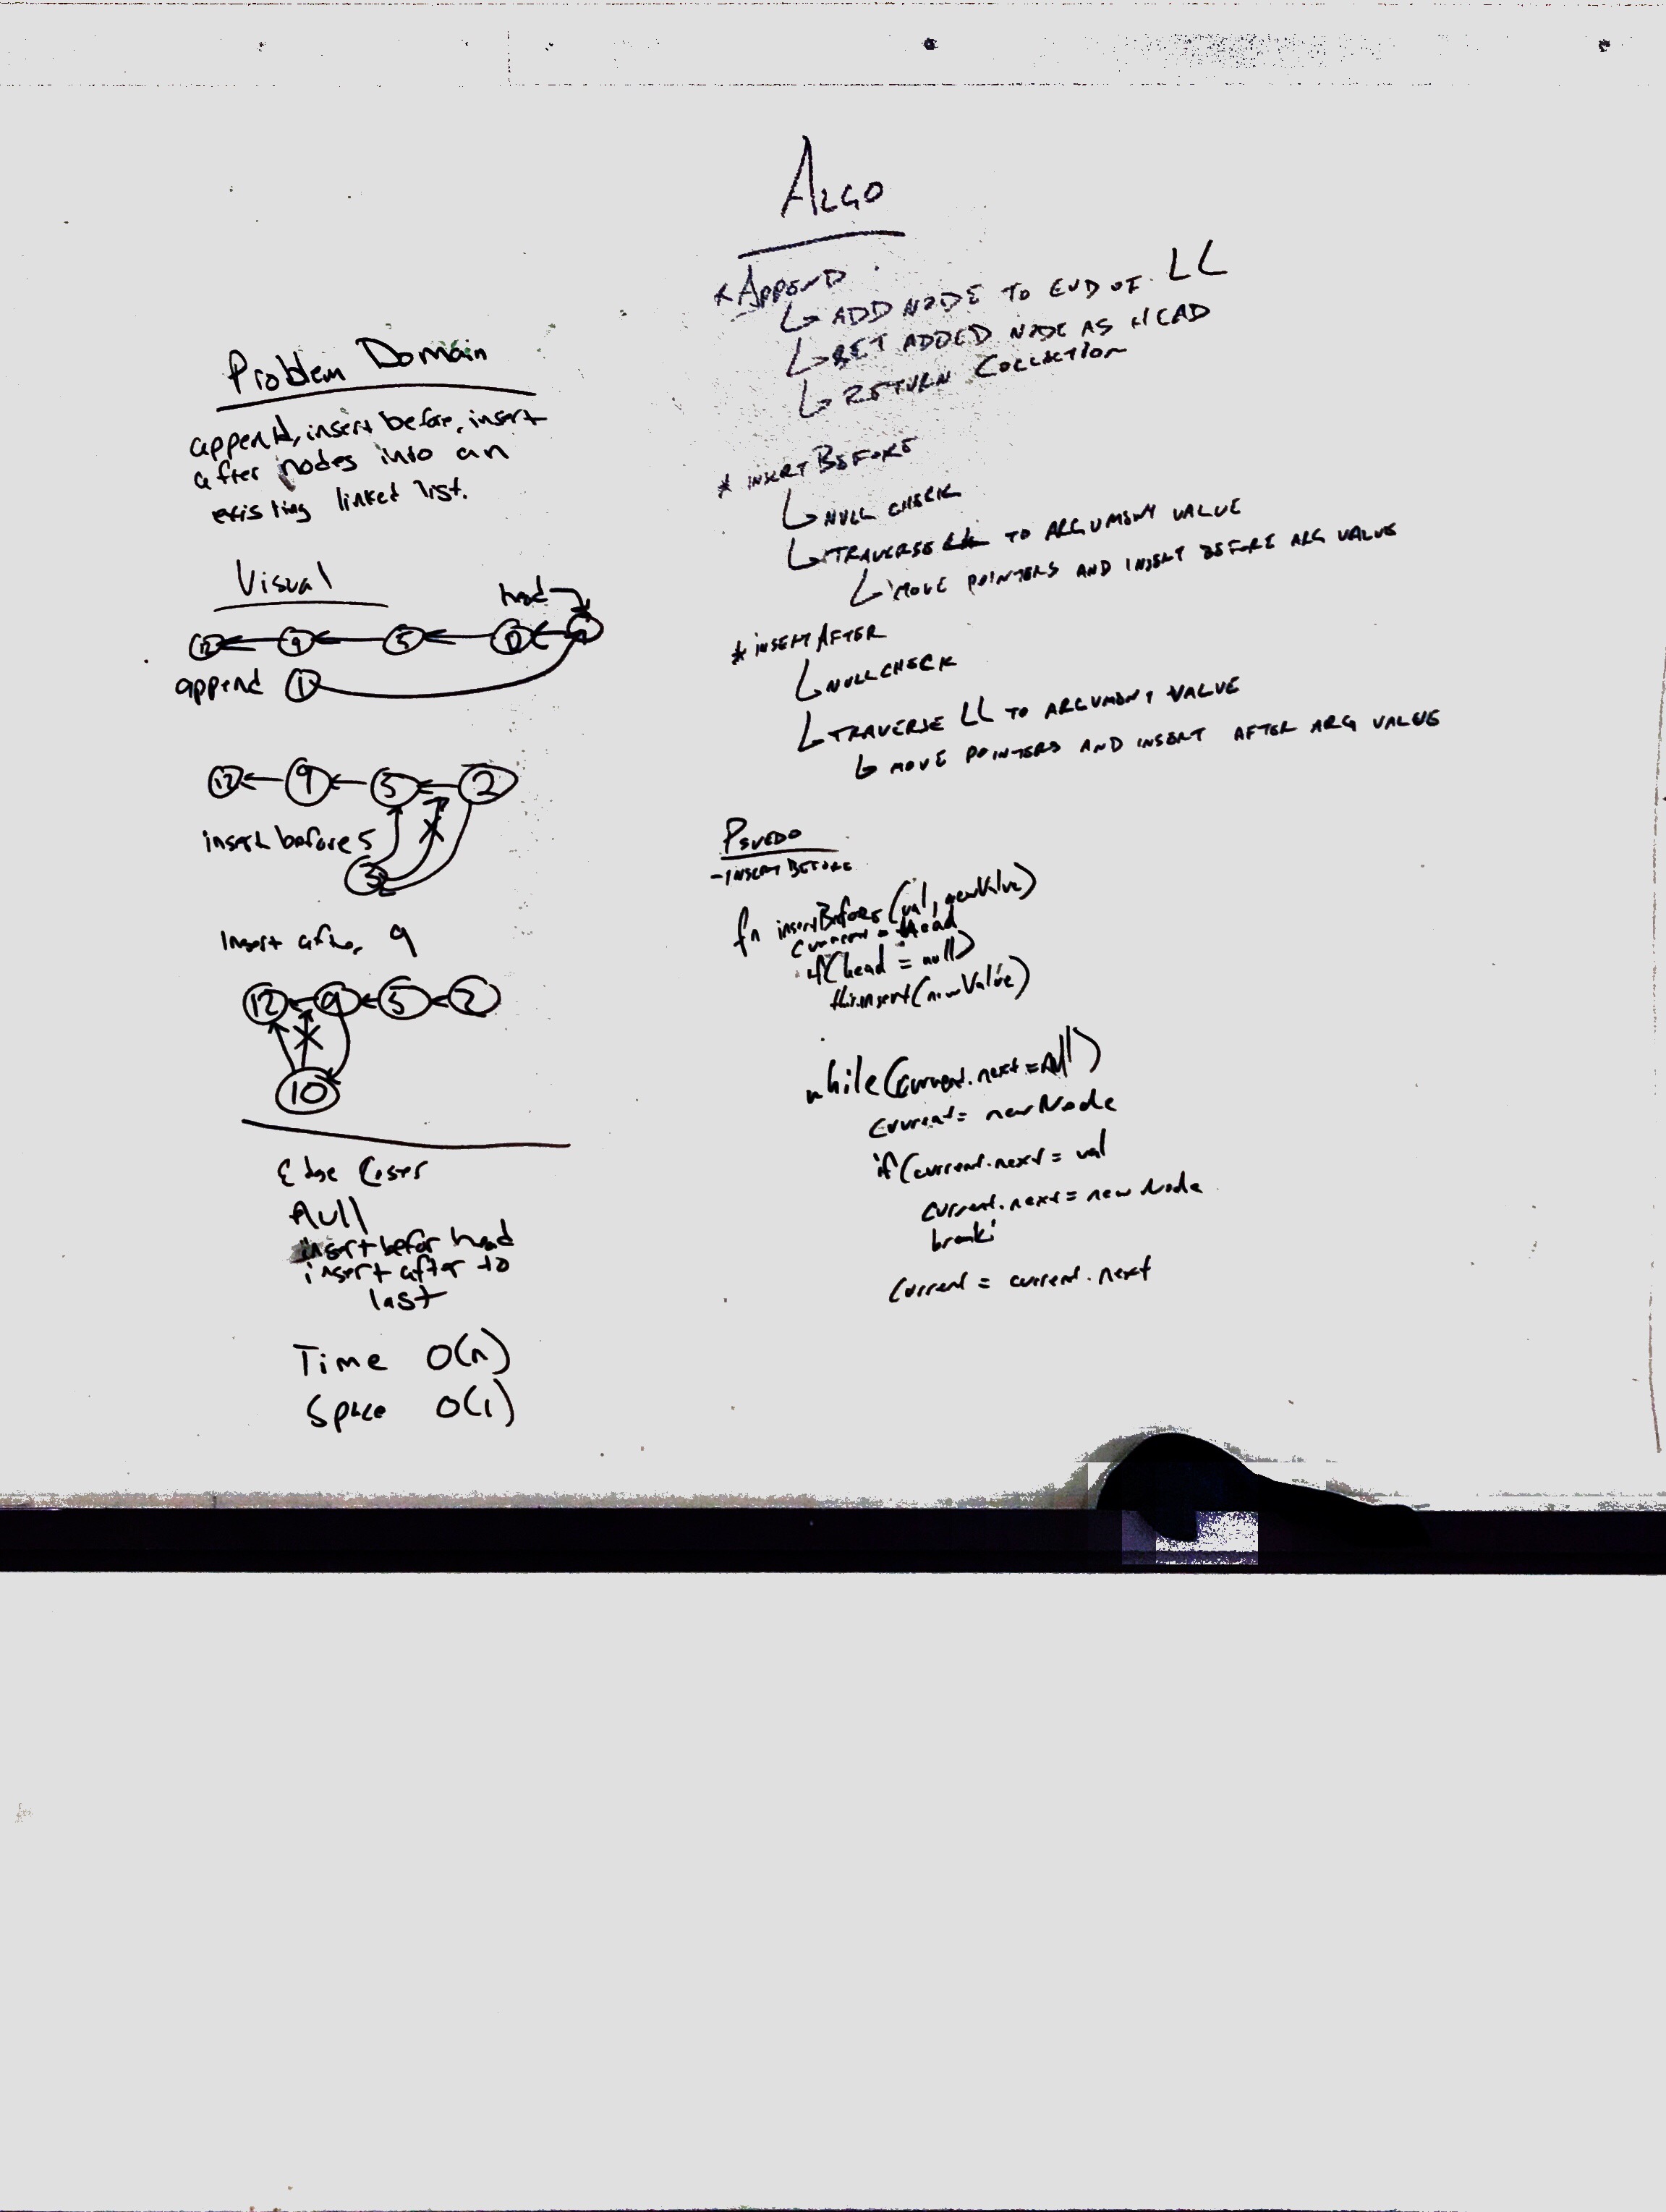 Problem Domain
append, insert before, insert
after nodes into an
existing linked list.
Visual
head
12 9 5
append 1
12 9 5 2
insert before 5
3
Insert after 9
12 9 5 2
10
Edge Cases
Null
insert befor head
insert after to
last
Time O(n)
Space O(1)
ALGO
* APPEND
ADD NODE TO END OF LL
SET ADDED NODE AS HEAD
RETURN COLLECTION
* INSERT BEFORE
NULL CHECK
TRAVERSE TO ARGUMENT VALUE
MOVE POINTERS AND INSERT BEFORE ARG VALUE
* INSERT AFTER
NULL CHECK
TRAVERSE LL TO ARGUMENT VALUE
MOVE POINTERS AND INSERT AFTER ARG VALUE
PSUEDO
- INSERT BEFORE
fn insertBefore (val, newValue)
current = head
if (head = null)
this.insert(newValue)
while (current.next = null)
current = newNode
if (current.next = val
current.next = newNode
break;
current = current.next